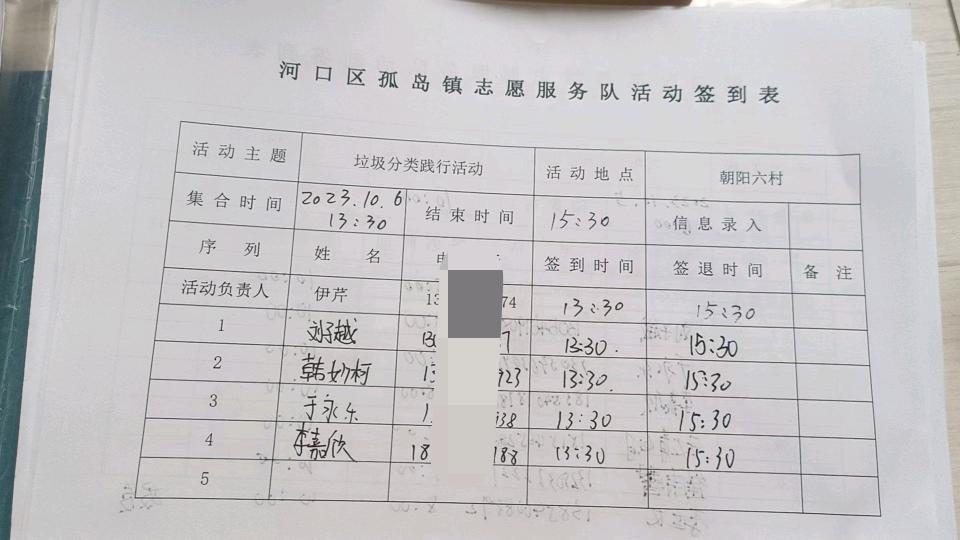 河口区孤岛镇志愿服务队活动签到表
活动主题 垃圾分类践行活动 活动地点 朝阳六村
集合时间 2023.10.6 13:30 结束时间 15:30 信息录入
序列 姓名 电 签到时间 签退时间 备注
活动负责人 伊芹 13 74 13:30 15:30
1 刘子越 130 7 13:30. 15:30
2 韩妙柯 13 923 13:30. 15:30
3 于永乐 1 938 13:30 15:30
4 李嘉欣 18 188 13:30 15:30
5